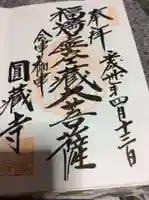 奉拝
平成廿年四月十二日
福満虚空藏大菩薩
會津柳津
圓藏寺